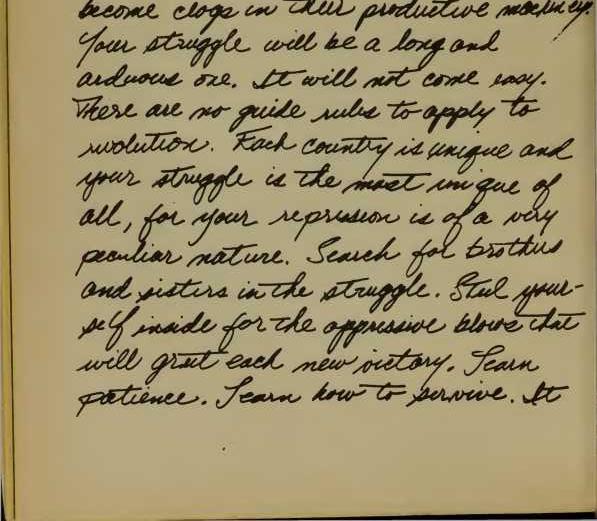 become clogs in their productive machinery.
Your struggle will be a long and
arduous one. It will not come easy.
There are no guide rules to apply to
revolution. Each country is unique and
your struggle is the most unique of
all, for your repression is of a very
peculiar nature. Search for brothers
and sisters in the struggle. Steel your-
self inside for the oppressive blows that
will greet each new victory. Learn
patience. Learn how to survive. It